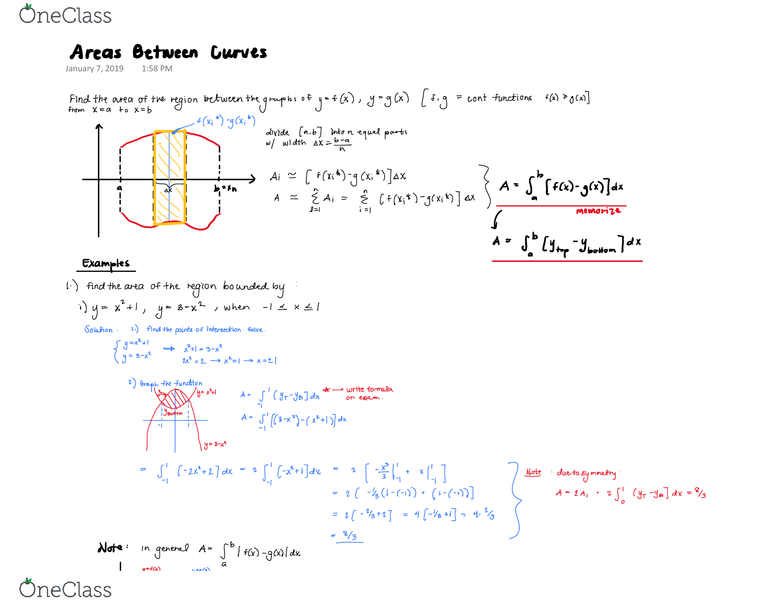 OneClass
Areas Between Curves
January 7, 2019 1:58 PM
Find the area of the region between the graphs of y=f(x), y=g(x) [f,g = cont functions f(x) ≥ g(x)]
from x=a to x=b
f(xi*)-g(xi*)
divide [a,b] into n equal parts
w/ width Δx = b-a/n
a Δx
Ai ≃ [f(xi*)-g(xi*)]Δx
A ≃ Σ Ai = Σ [f(xi*)-g(xi*)] Δx
i=1 n i=1 n
A = ∫_a^b [f(x)-g(x)]dx
memorize
A = ∫_a^b [y_top - y_bottom] dx
Examples
1.) find the area of the region bounded by :
i) y = x²+1, y = 3-x², when -1 ≤ x ≤ 1
Solution : 1.) Find the points of intersection. solve:
{ y=x²+1 → x²+1 = 3-x²
y = 3-x² 2x² = 2 → x²=1 → x = ±1
2) Graph the function
y = x²+1
y_bottom
-1 1
y = 3-x²
A = ∫_-1^1 [y_T - y_B] dx * → write formula
on exam.
A = ∫_-1^1 [(3-x²)-(x²+1)] dx
= ∫_-1^1 [-2x²+2] dx = 2 ∫_-1^1 [-x²+1] dx = 2 [ -x³/3 |_-1^1 + x |_-1^1 ]
= 2 [ -1/3 (1-(-1)) + (1-(-1)) ]
= 2 [ -2/3 + 2 ] = 4 [ -1/3 + 1 ] = 4 · 2/3
= 8/3
Note : due to symmetry :
A = 2A₁ = 2 ∫_0^1 [y_T - y_B] dx = 8/3
Note : in general A = ∫_a^b |f(x)-g(x)| dx
OneClass